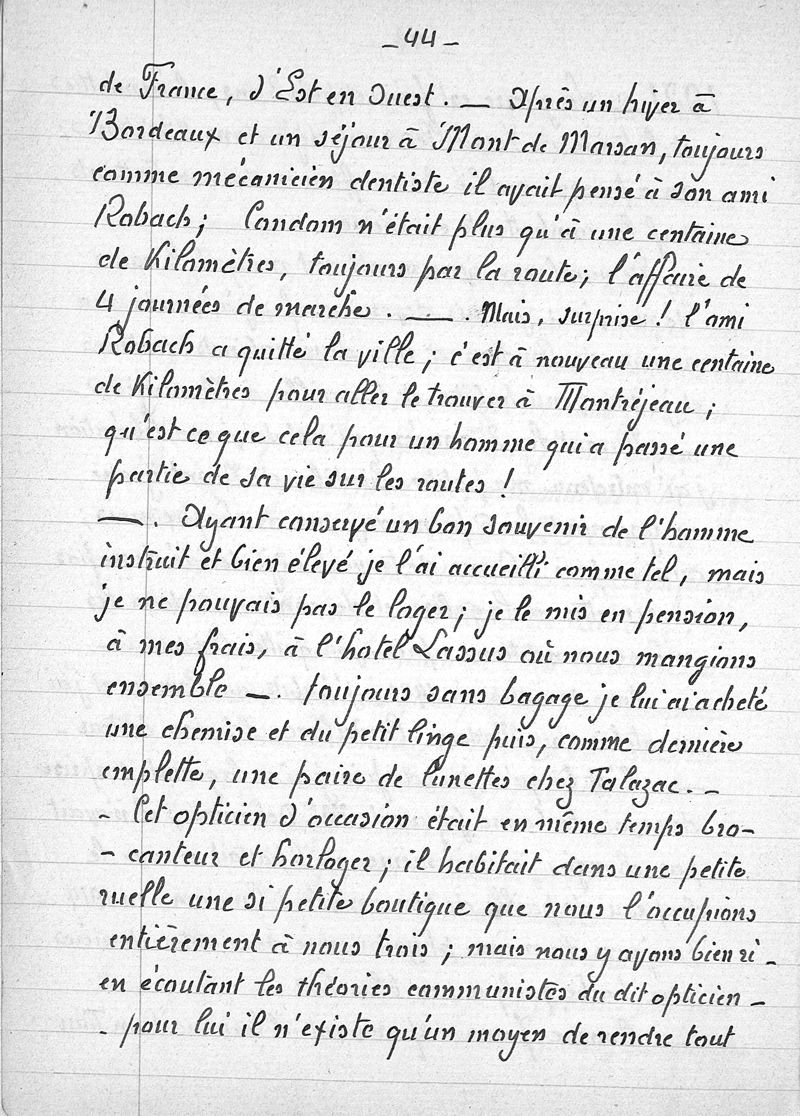 _ 44 _
de France, d'Est en Ouest. — Après un hiver à
Bordeaux et un séjour à Mont de Marsan, toujours
comme mécanicien dentiste il avait pensé à son ami
Robach; Condom n'était plus qu'à une centaine
de Kilomètres, toujours par la route; l'affaire de
4 journées de marche. —. Mais, surprise! l'ami
Robach a quitté la ville; c'est à nouveau une centaine
de Kilomètres pour aller le trouver à Montréjeau;
qu'est ce que cela pour un homme qui a passé une
partie de sa vie sur les routes!
—. Ayant conservé un bon souvenir de l'homme
instruit et bien élevé je l'ai accueilli comme tel, mais
je ne pouvais pas le loger; je le mis en pension,
à mes frais, à l'hotel Lassus où nous mangions
ensemble —. toujours sans bagage je lui ai acheté
une chemise et du petit linge puis, comme dernière
emplette, une paire de lunettes chez Talazac. -
- Cet opticien d'occasion était en même temps bro-
- canteur et horloger; il habitait dans une petite
ruelle une si petite boutique que nous l'occupions
entièrement à nous trois; mais nous y avons bien ri -
en écoutant les théories communistes du dit opticien -
- pour lui il n'existe qu'un moyen de rendre tout